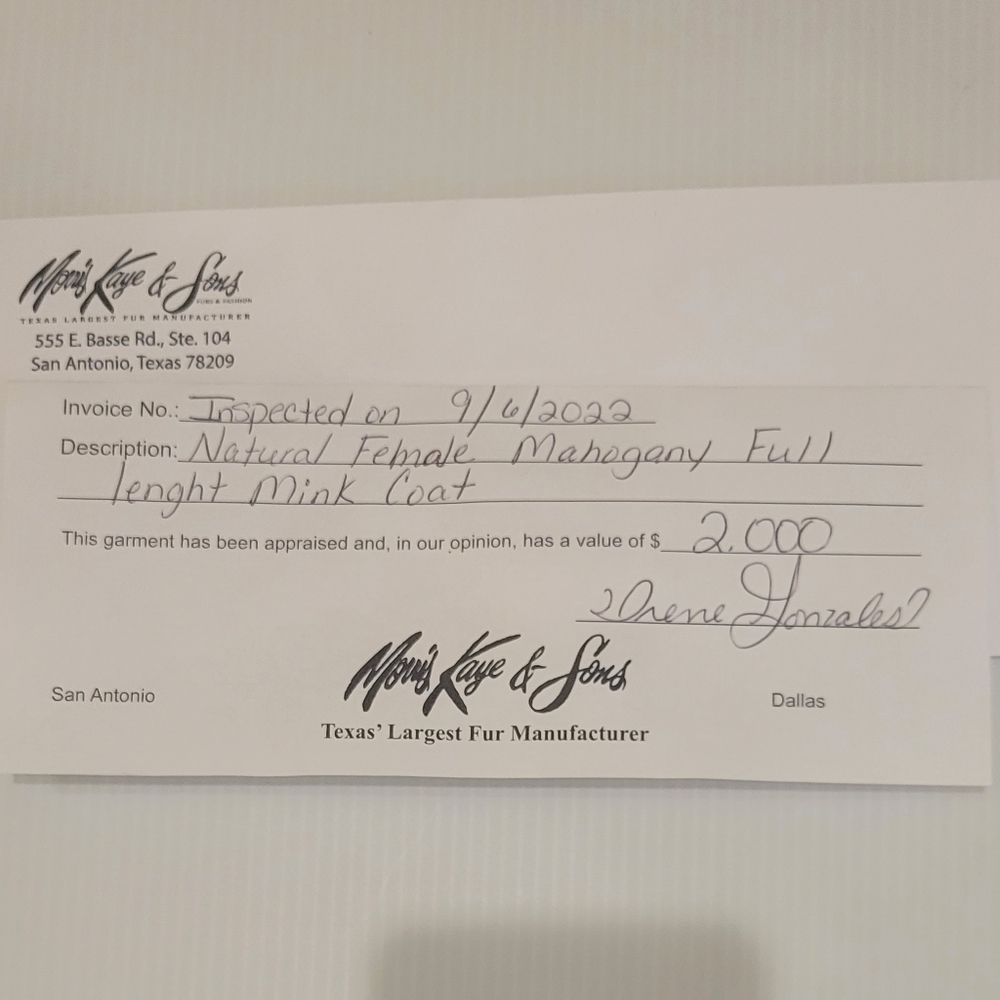 Morris Kaye & Sons
FURS & FASHION
TEXAS LARGEST FUR MANUFACTURER
555 E. Basse Rd., Ste. 104
San Antonio, Texas 78209
Invoice No.: Inspected on 9/6/2022
Description: Natural Female Mahogany Full
lenght Mink Coat
This garment has been appraised and, in our opinion, has a value of $ 2.000
Irene Gonzales
Morris Kaye & Sons
San Antonio
Dallas
Texas' Largest Fur Manufacturer